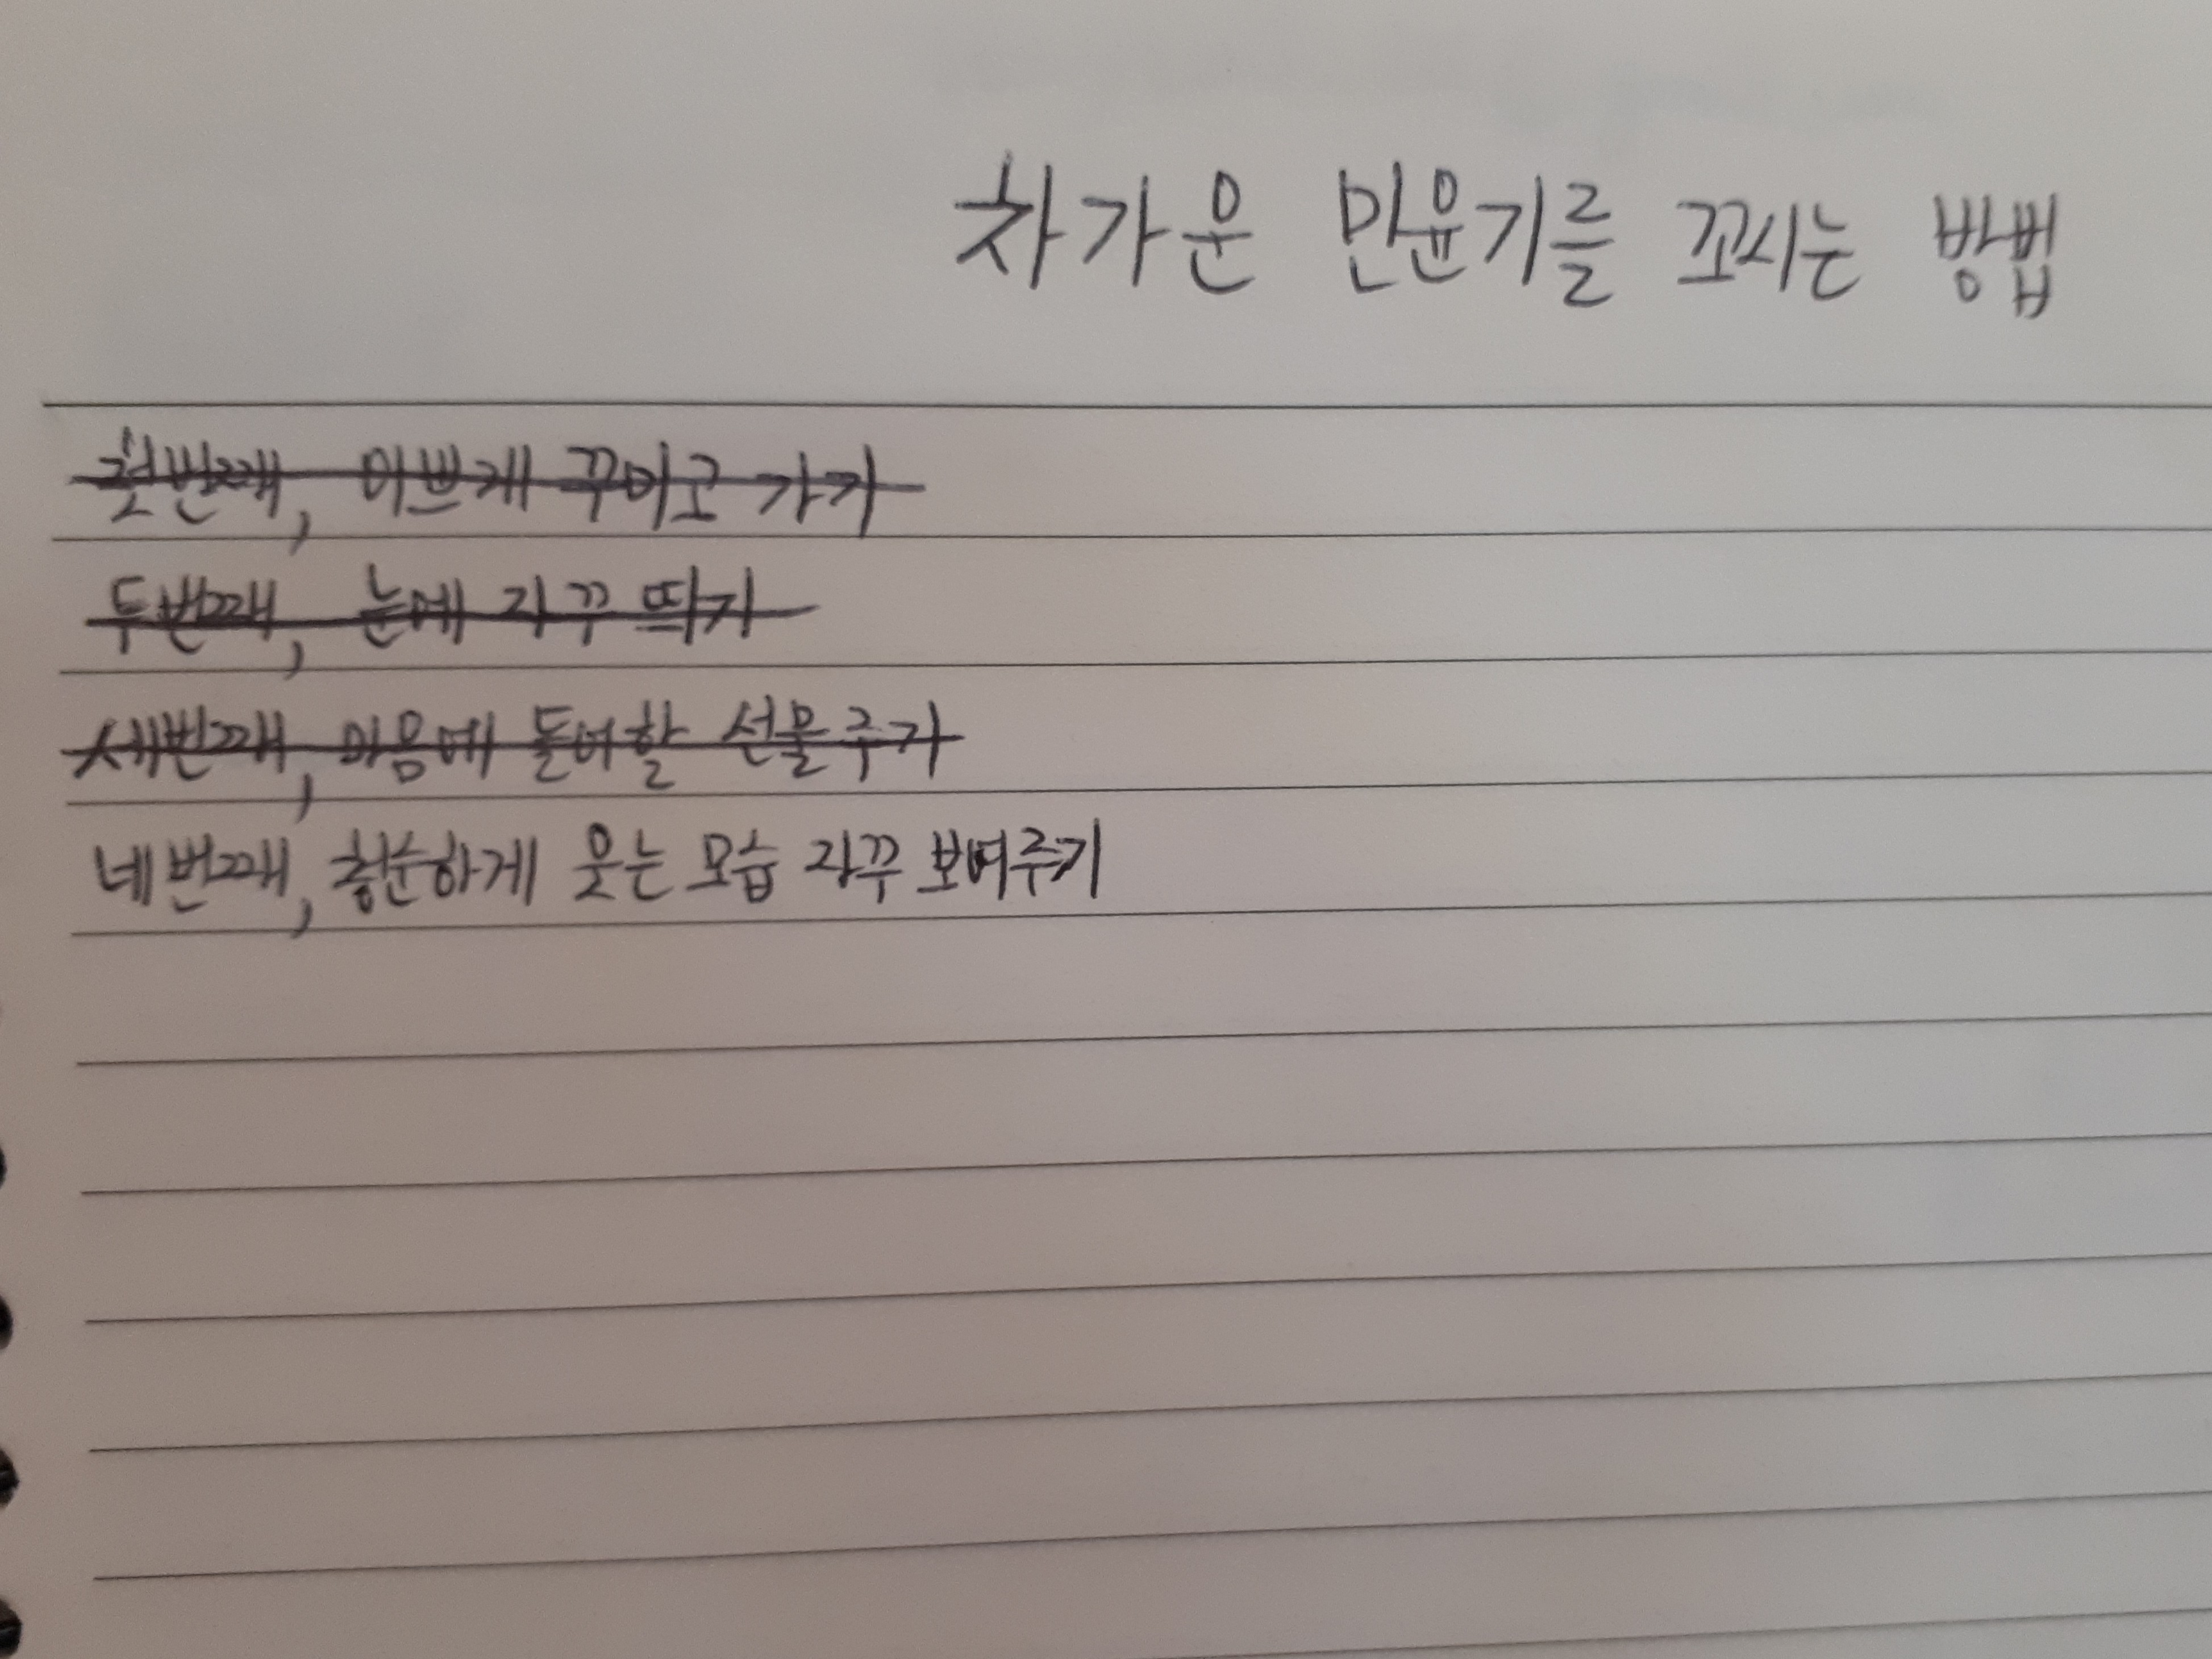 차가운 민윤기를 꼬시는 방법
첫번째, 이쁘게 꾸미고 가기
두번째, 눈에 자꾸 띄기
세번째, 마음에 들어할 선물주기
네번째, 청순하게 웃는 모습 자꾸 보여주기